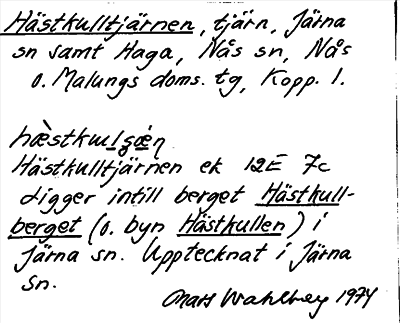 Hästkulltjärnen, tjärn, Järna
sn samt Haga, Nås sn, Nås
o. Malungs doms. tg, Kopp. l.
Hästkulltjärnen ek 12E 7c
ligger intill berget Hästkull-
berget (o. byn Hästkullen) i
Järna sn. Upptecknat i Järna
sn.
Mats Wahlberg 1974